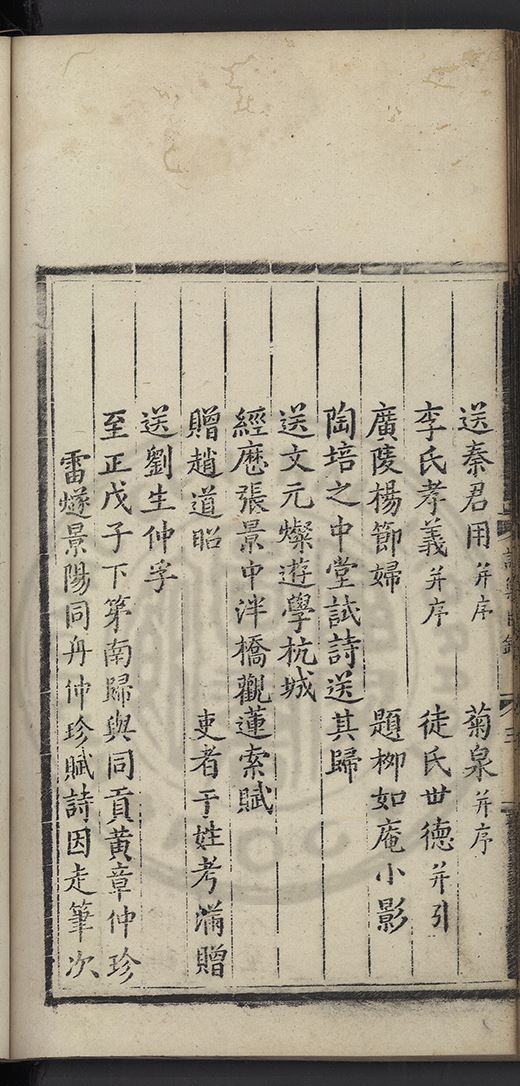 送秦君用并序　菊泉并序
李氏孝義并序　徒氏世德并引
廣陵楊節婦　題栁如庵小影
陶培之中堂試詩送其歸
送文元燦遊學杭城
經歷張景中泮橋觀蓮索賦
贈趙道昭　吏者于姓考滿贈
送劉生仲孚
至正戊子下第南歸與同貢黄章仲珍
雷燧景陽同舟仲珍賦詩因走筆次